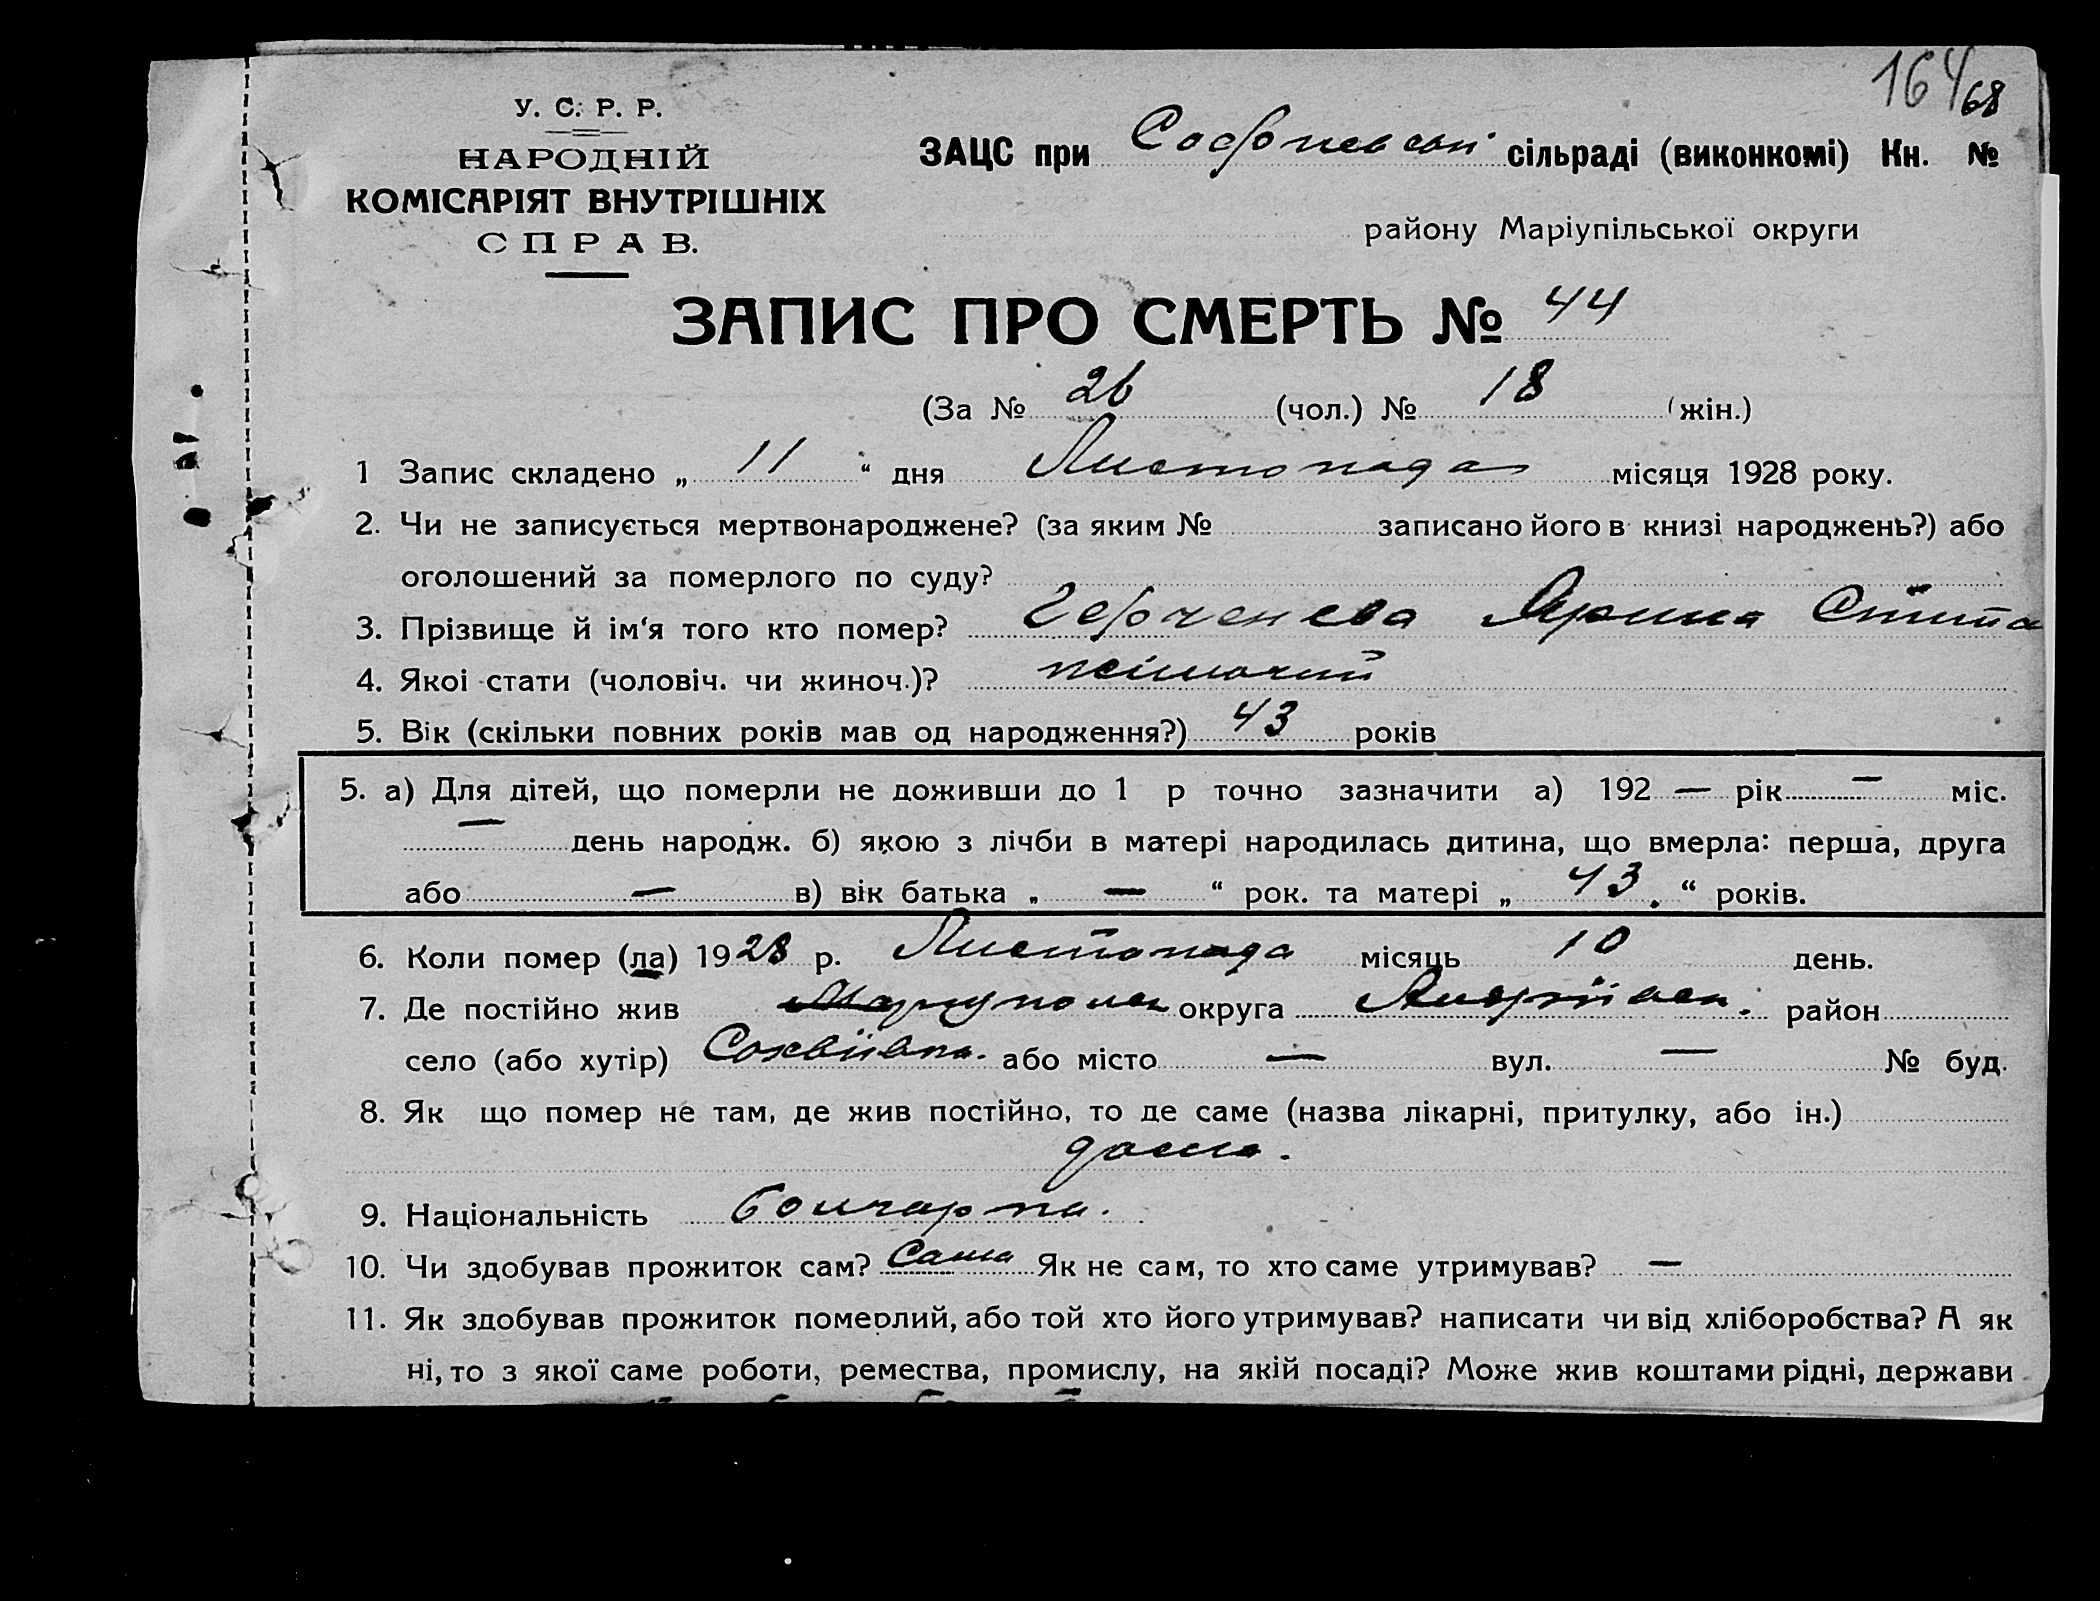 164 68
У. С. Р. Р.
НАРОДНІЙ
КОМІСАРІЯТ ВНУТРІШНІХ
СПРАВ.
ЗАЦС при Софиевскй сільраді (виконкомі) Кн. №
району Маріупільської округи
ЗАПИС ПРО СМЕРТЬ № 44
(За № 26 (чол.) № 18 (жін.)
1 Запис складено „ 11 “ дня Листопада місяця 1928 року.
2. Чи не записується мертвонароджене? (за яким № записано його в книзі народжень?) або
оголошений за померлого по суду?
3. Прізвище й ім‘я того кто помер? Ярина
4. Якоі стати (чоловіч. чи жиноч.)? жіночий
5. Вік (скільки повних років мав од народження?) 43 років
5. а) Для дітей, що померли не доживши до 1 р точно зазначити а) 192 — рік — міс.
— день народж. б) якою з лічби в матері народилась дитина, що вмерла: перша, друга
або — в) вік батька „ — “ рок. та матері „ 43. “ років.
6. Коли помер (ла) 1928 р. Листопада місяць 10 день.
7. Де постійно жив округа район
село (або хутір) або місто — вул. — № буд.
8. Як що помер не там, де жив постійно, то де саме (назва лікарні, притулку, або ін.)
дома.
9. Національність
10. Чи здобував прожиток сам? Сама Як не сам, то хто саме утримував? —
11. Як здобував прожиток померлий, або той хто його утримував? написати чи від хліборобства? А як
ні, то з якої саме роботи, ремества, промислу, на якій посаді? Може жив коштами рідні, держави